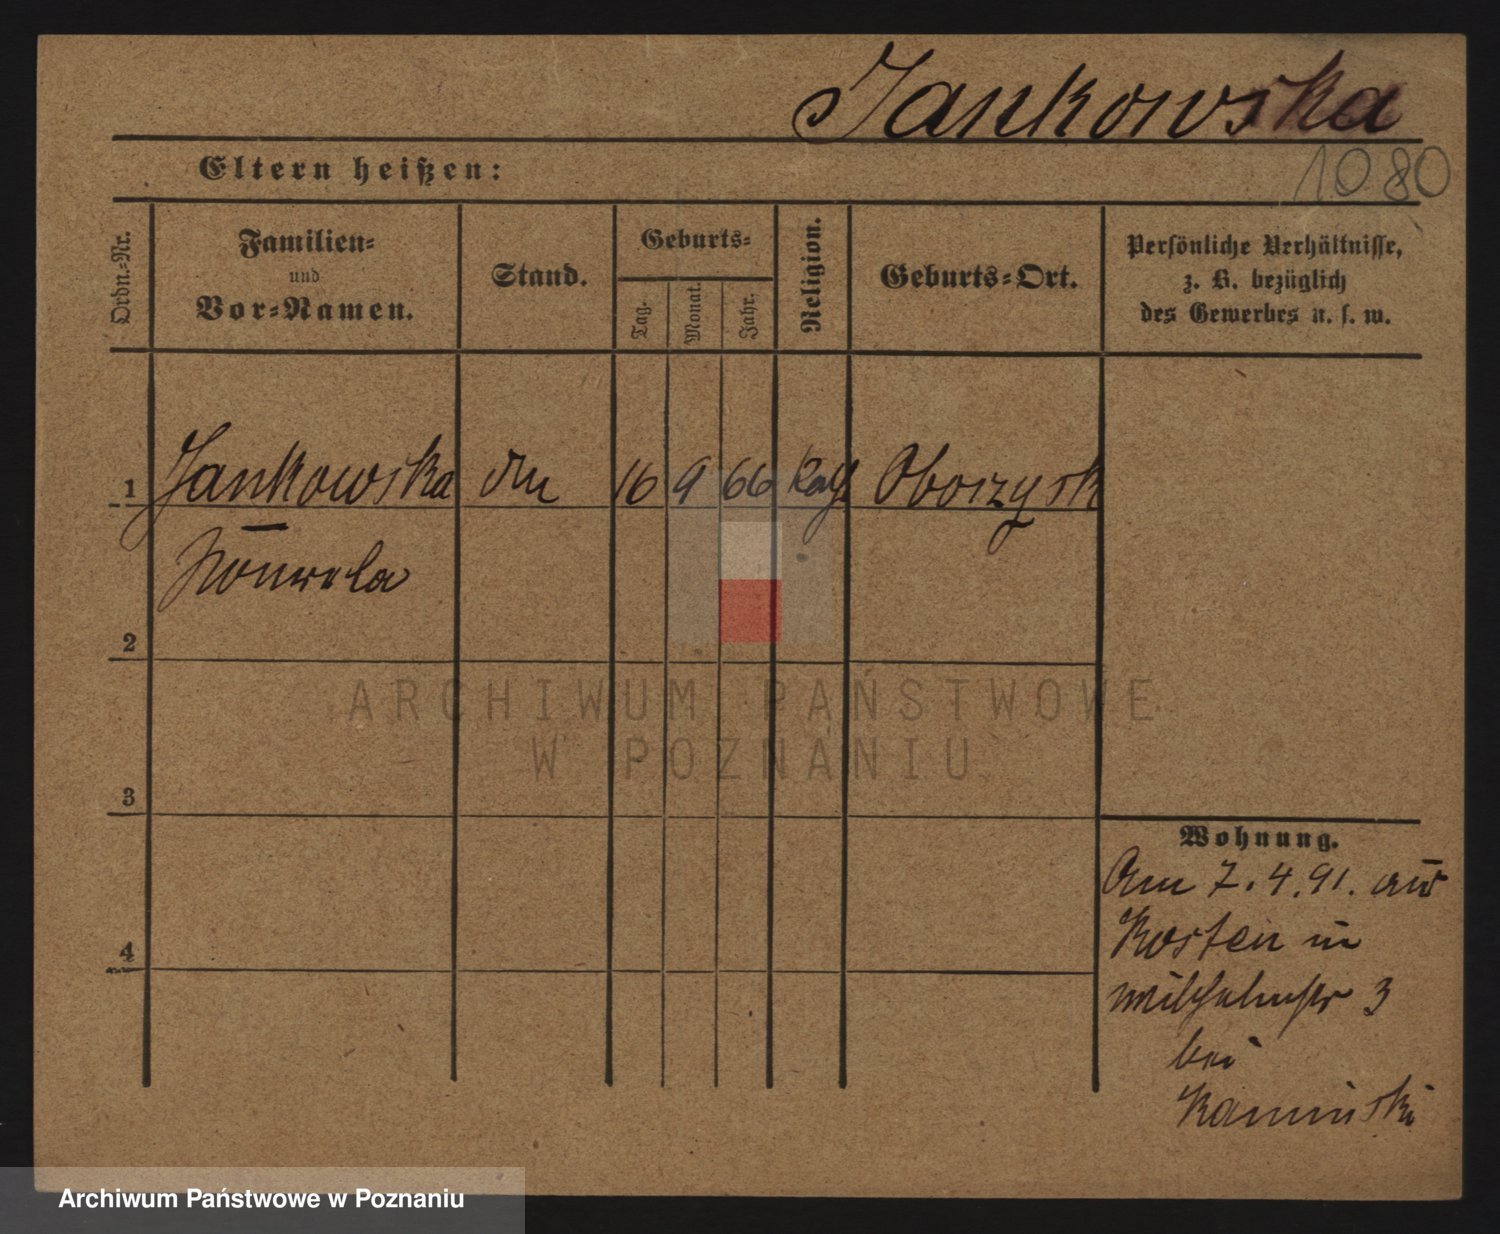 Jankowska
Eltern heißen:
1080
Ordn.-Nr.
Familien-
und
Vor-Namen.
Stand.
Geburts-
Tag.
Monat.
Jahr.
Religion.
Geburts-Ort.
Persönliche Verhältnisse,
z. B. bezüglich
des Gewerbes u. s. w.
1
Jankowska
16
9
66
Kath
Oborzysk
2
3
4
Wohnung.
Am 7.4.91. aus
Kosten in
Wilhelmstr 3
bei
Kaminski
ARCHIWUM PAŃSTWOWE
W POZNANIU
Archiwum Państwowe w Poznaniu